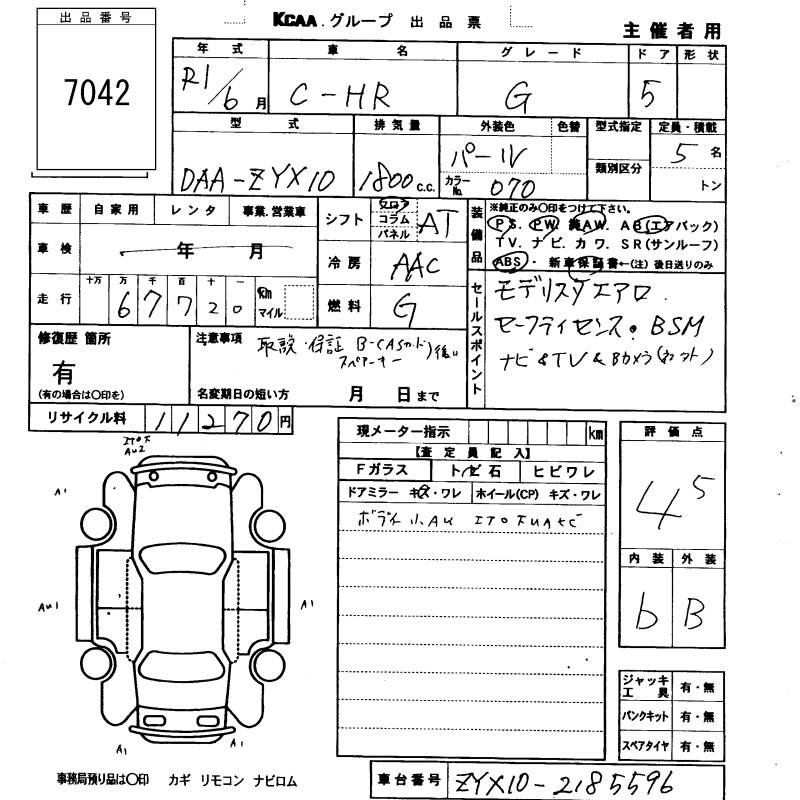 出品番号
7042
KCAA.グループ 出品票
主催者用
年式 車名 グレード ドア 形状
R1/6月 C-HR G 5
型式 排気量 外装色 色替 型式指定 定員・積載
DAA-ZYX10 1800c.c. パール 類別区分 5名
カラーNo. 070 トン
車歴 自家用 レンタ 事業.営業車
シフト フロア コラム パネル AT
装備品 ※純正のみ〇印をつけて下さい。
P S. PW. 純AW. AB(エアバック)
TV. ナビ. カワ. SR(サンルーフ)
ABS・ 新車保証書←(注) 後日送りのみ
車検 年 月
冷房 AAC
走行 十万 万 千 百 十 一 km マイル
67720
燃料 G
セールスポイント
モデリスタエアロ.
セーフティセンス・BSM
ナビ&TV&Bカメラ
修復歴 箇所
有
(有の場合は〇印を)
注意事項 取説・保証
スペアキー 後日
名変期日の短い方 月 日まで
リサイクル料 11270円
現メーター指示 km
【査定員記入】
Fガラス トビ石 ヒビワレ
ドアミラー キズ・ワレ ホイール(CP) キズ・ワレ
ボディ小AU
評価点
4.5
内装 外装
b B
AU2
A1
AU1 A1
A1 A1
ジャッキ工具 有・無
パンクキット 有・無
スペアタイヤ 有・無
事務局預り品は〇印 カギ リモコン ナビロム
車台番号 ZYX10-2185596